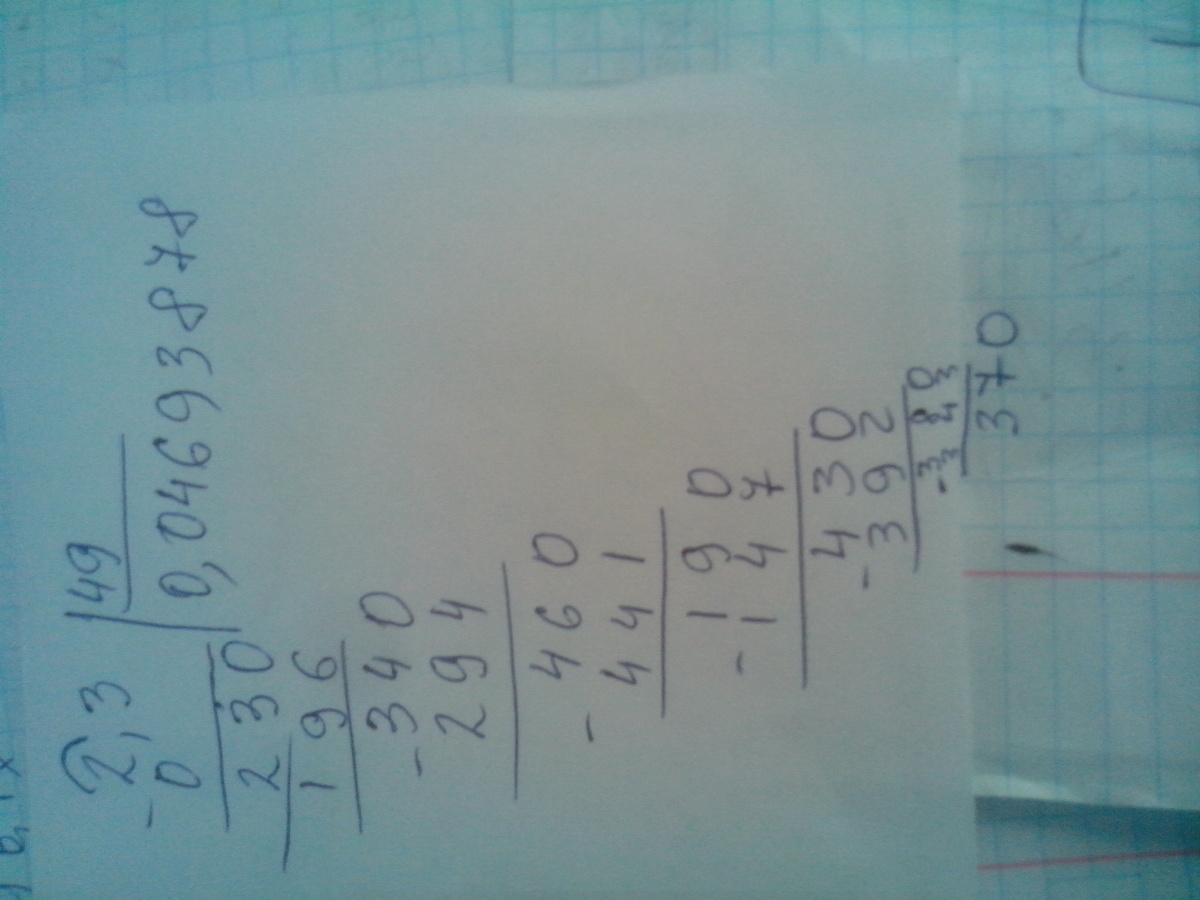 2,3 49
- 0 0,046938778
230
196
- 340
294
- 460
441
- 190
147
- 430
392
- 380
343
370